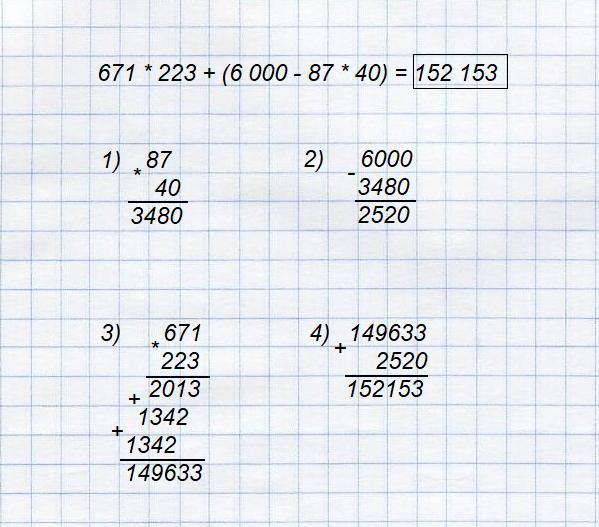 671 * 223 + (6 000 - 87 * 40) = 152 153
1) 87
*
40
3480
2) 6000
-
3480
2520
3) 671
*
223
2013
+
1342
+
1342
149633
4) 149633
+
2520
152153